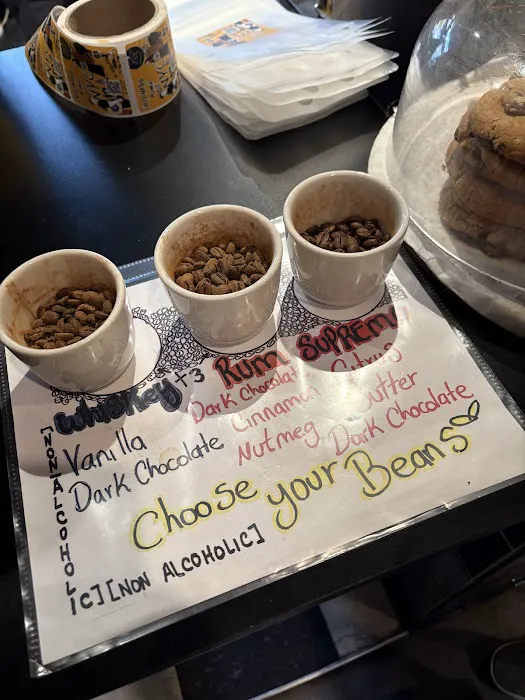 WHISKEY +3
Vanilla
Dark Chocolate
RUM
Dark Chocolat
Cinnamon
Nutmeg
SUPREMO
Citrus
Butter
Dark Chocolate
Choose your Beans
[NON ALCOHOLIC]
[NON ALCOHOLIC]